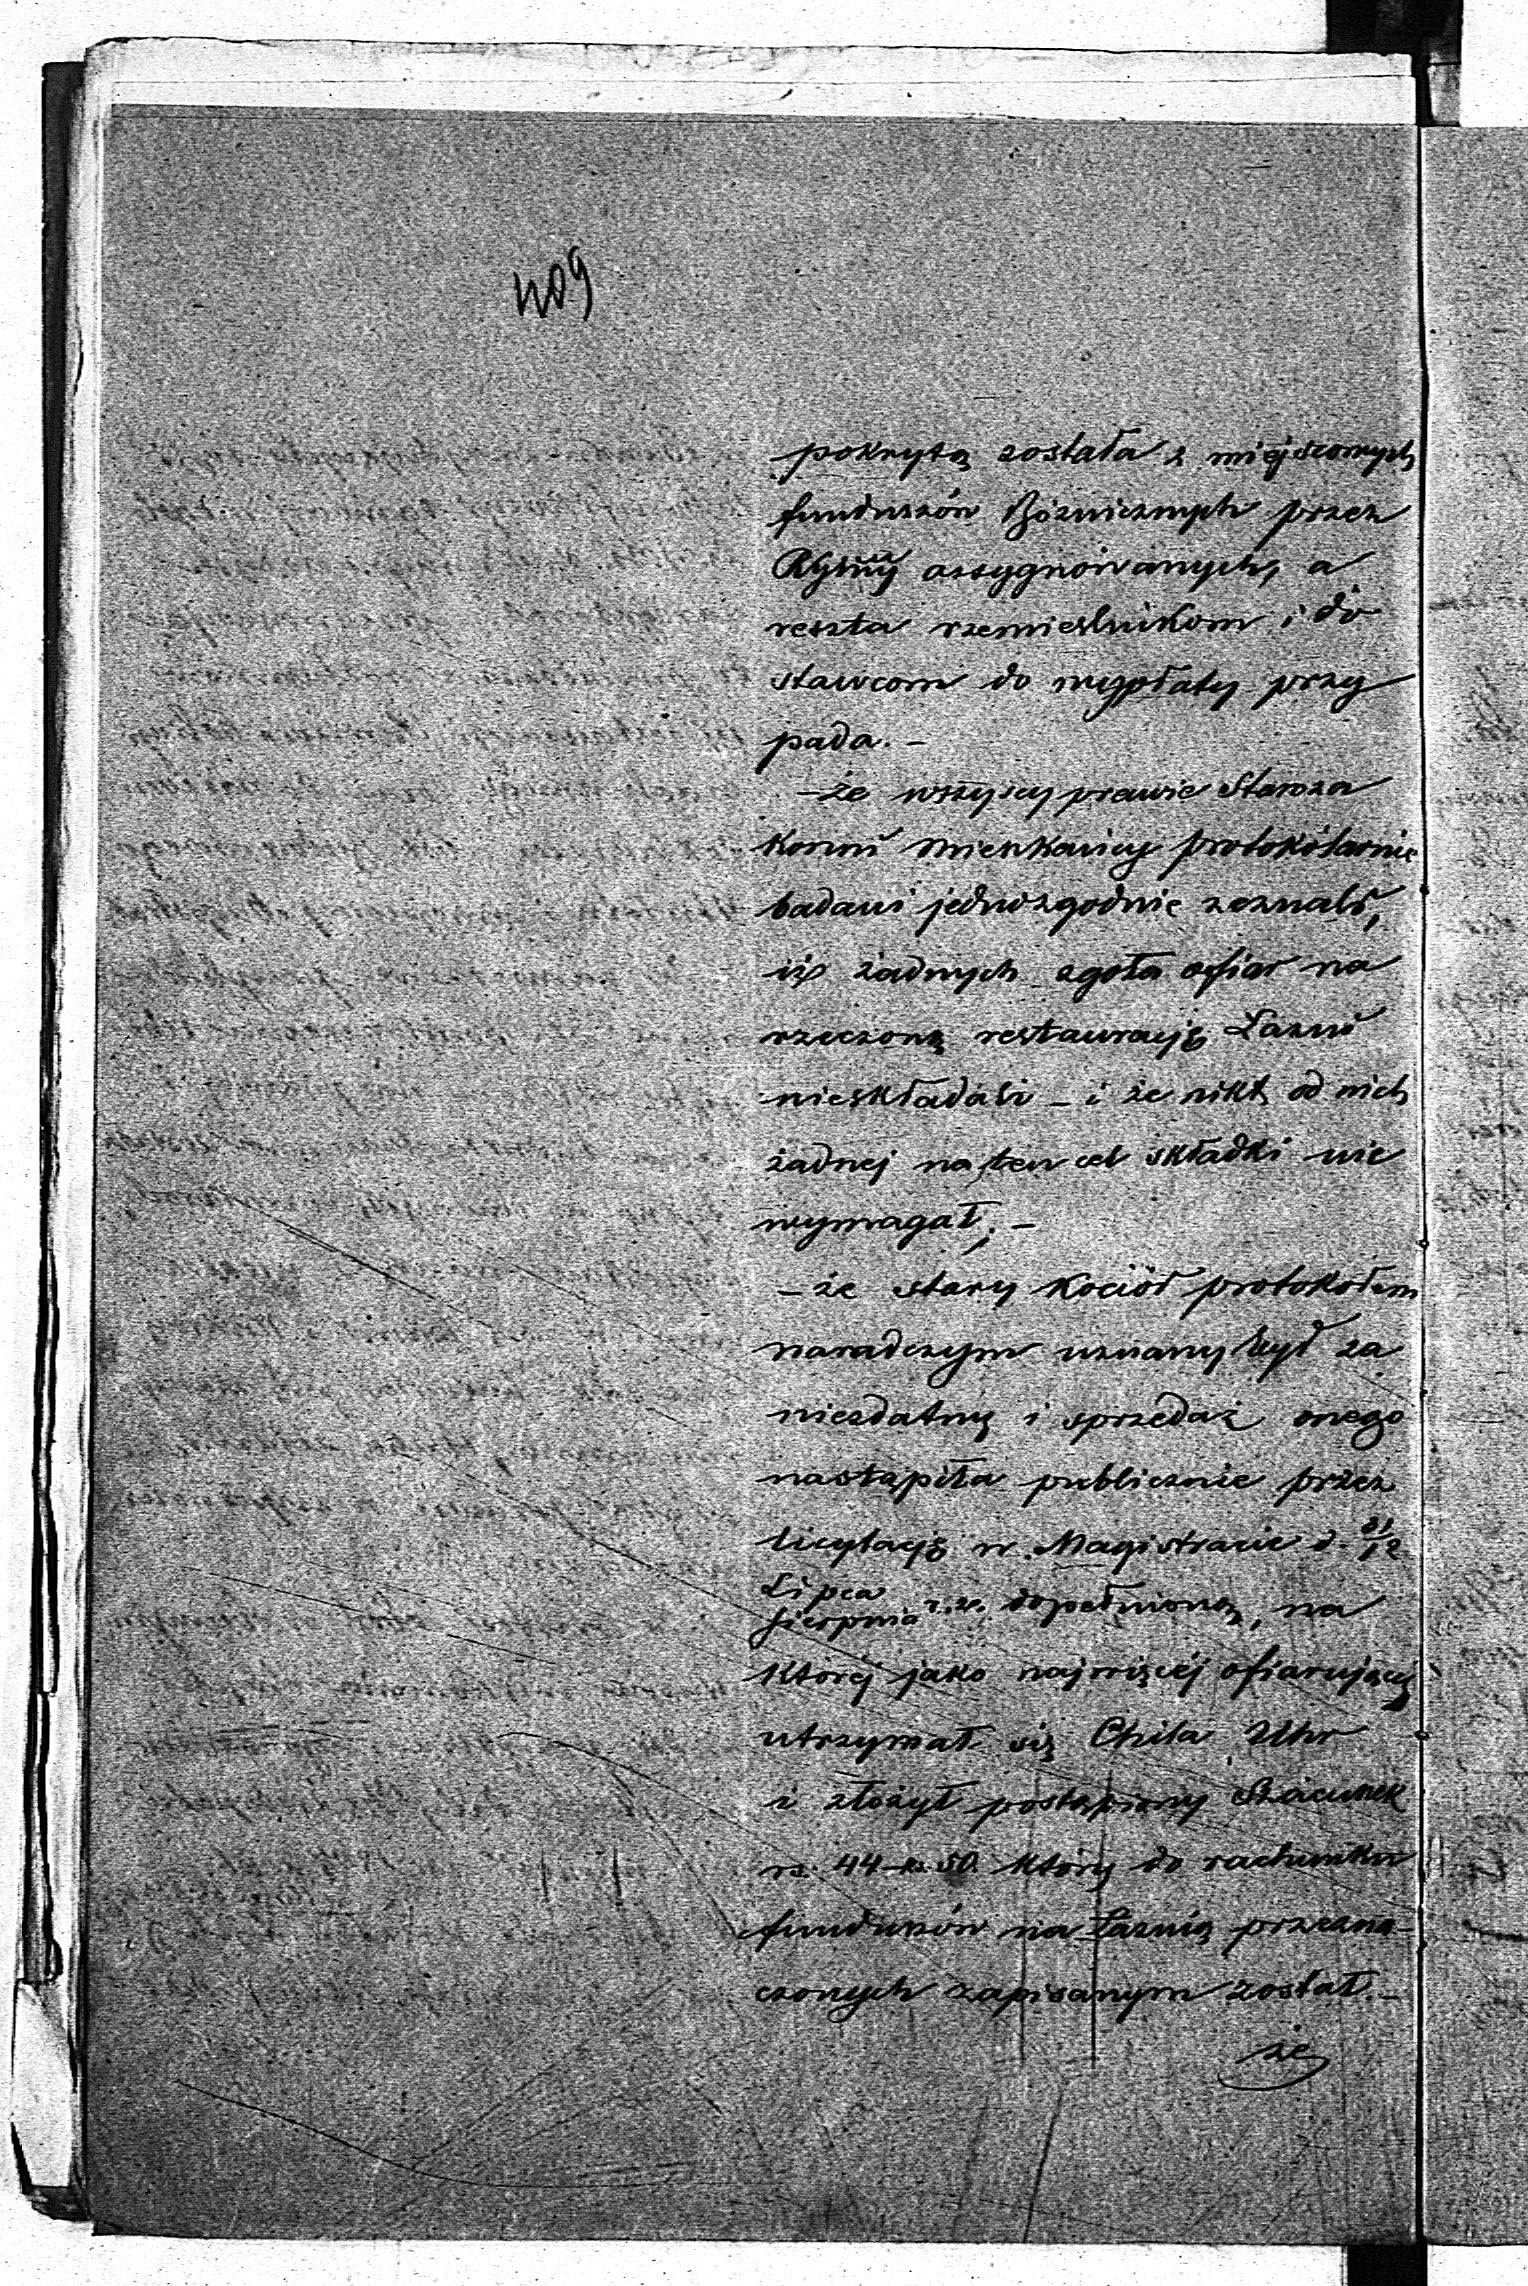 409
pokrytą została z miejscowych
funduszów Bóżnicznych przez
assygnowanych, a
reszta rzemieślnikom i do
stawcom do wypłaty przy
pada. –
– że wszyscy prawie Staroza
konni Mieszkańcy protokólarnie
badani jednozgodnie zeznali,
iż żadnych zgoła ofiar na
rzeczoną restauracyę Łazni
nieskładali – i że nikt od nich
żadnej na ten cel składki nie
wymagał; –
– że stary Kocioł protokołem
naradczym uznany był za
niezdatny i sprzedaż onego
nastąpiła publicznie przez
licytacyę w Magistracie d. 31/12
Lipca/Sierpnia r.z. dopełnioną, na
której jako najwięcej ofiarujący
utrzymał się Chila Uhr
i złożył postąpiony Szacunek
rs. 44 – k. 50. który do rachunku
funduszów na Łaznią przezna–
czonych zapisanym został. –
że